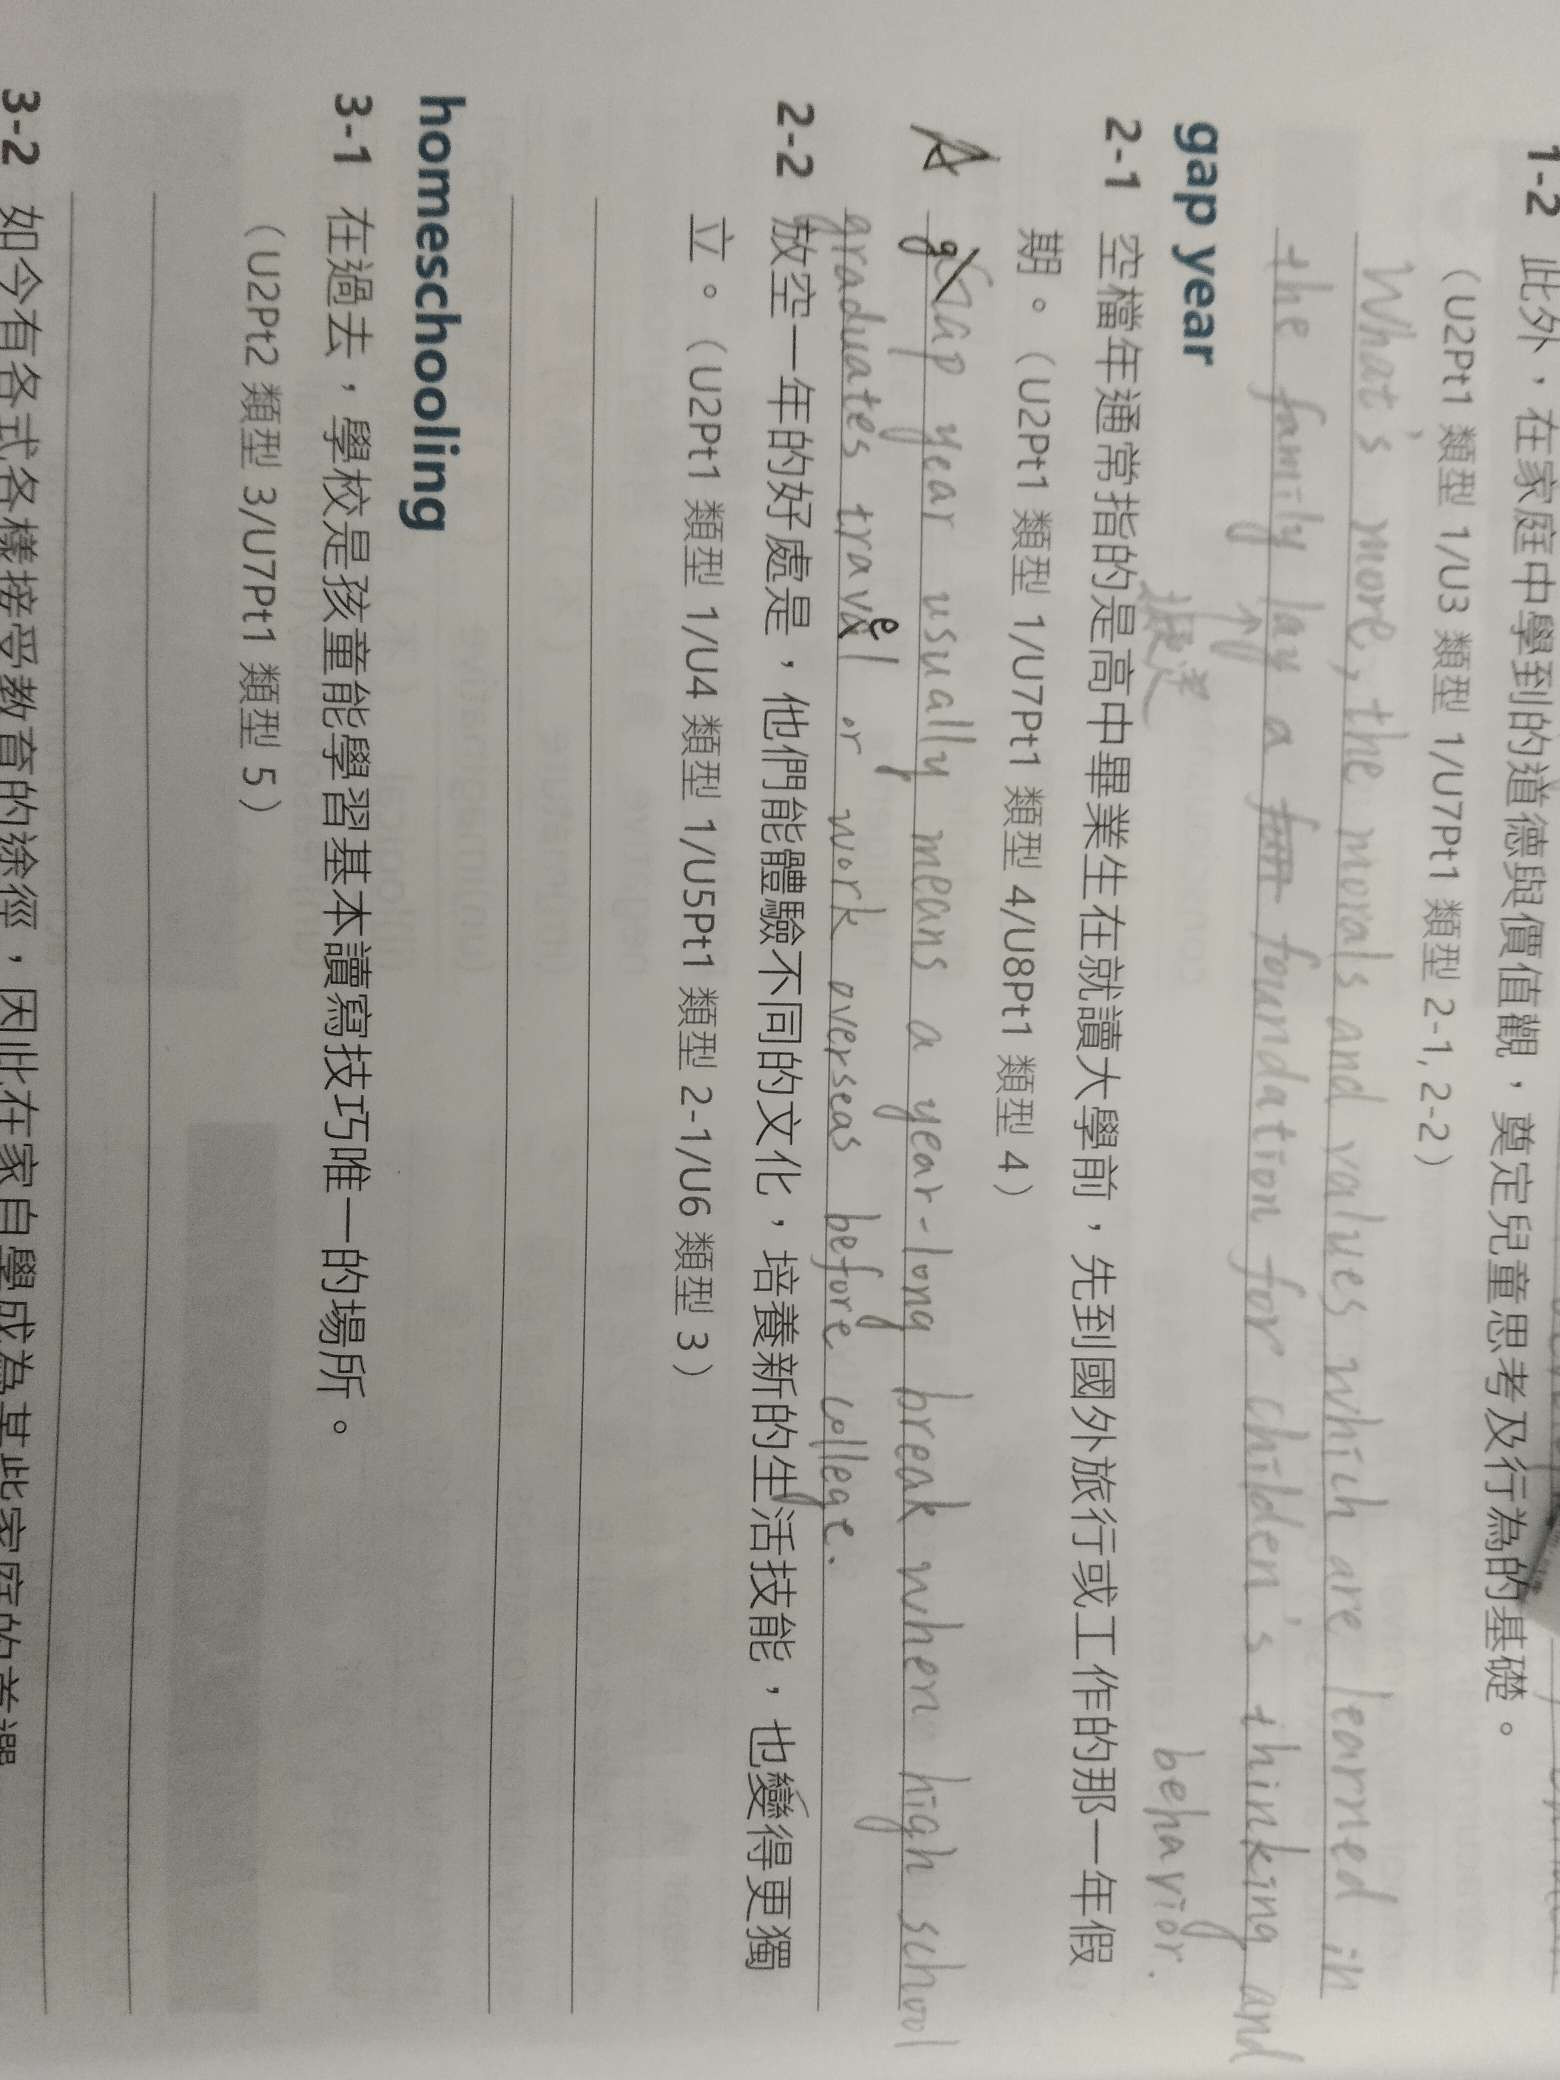 1-2 此外，在家庭中學到的道德與價值觀，奠定兒童思考及行為的基礎。
（U2Pt1 類型 1/U3 類型 1/U7Pt1 類型 2-1, 2-2）
What's more, the morals and values which are learned in
the family lay a foundation for childen's thinking and
behavior.
gap year
2-1 空檔年通常指的是高中畢業生在就讀大學前，先到國外旅行或工作的那一年假
期。（U2Pt1 類型 1/U7Pt1 類型 4/U8Pt1 類型 4）
A gap year usually means a year-long break when high school
graduates travel or work overseas before college.
2-2 放空一年的好處是，他們能體驗不同的文化，培養新的生活技能，也變得更獨
立。（U2Pt1 類型 1/U4 類型 1/U5Pt1 類型 2-1/U6 類型 3）
homeschooling
3-1 在過去，學校是孩童能學習基本讀寫技巧唯一的場所。
（U2Pt2 類型 3/U7Pt1 類型 5）
3-2 如今有各式各樣接受教育的途徑，因此在家自學成為某些家庭的首選